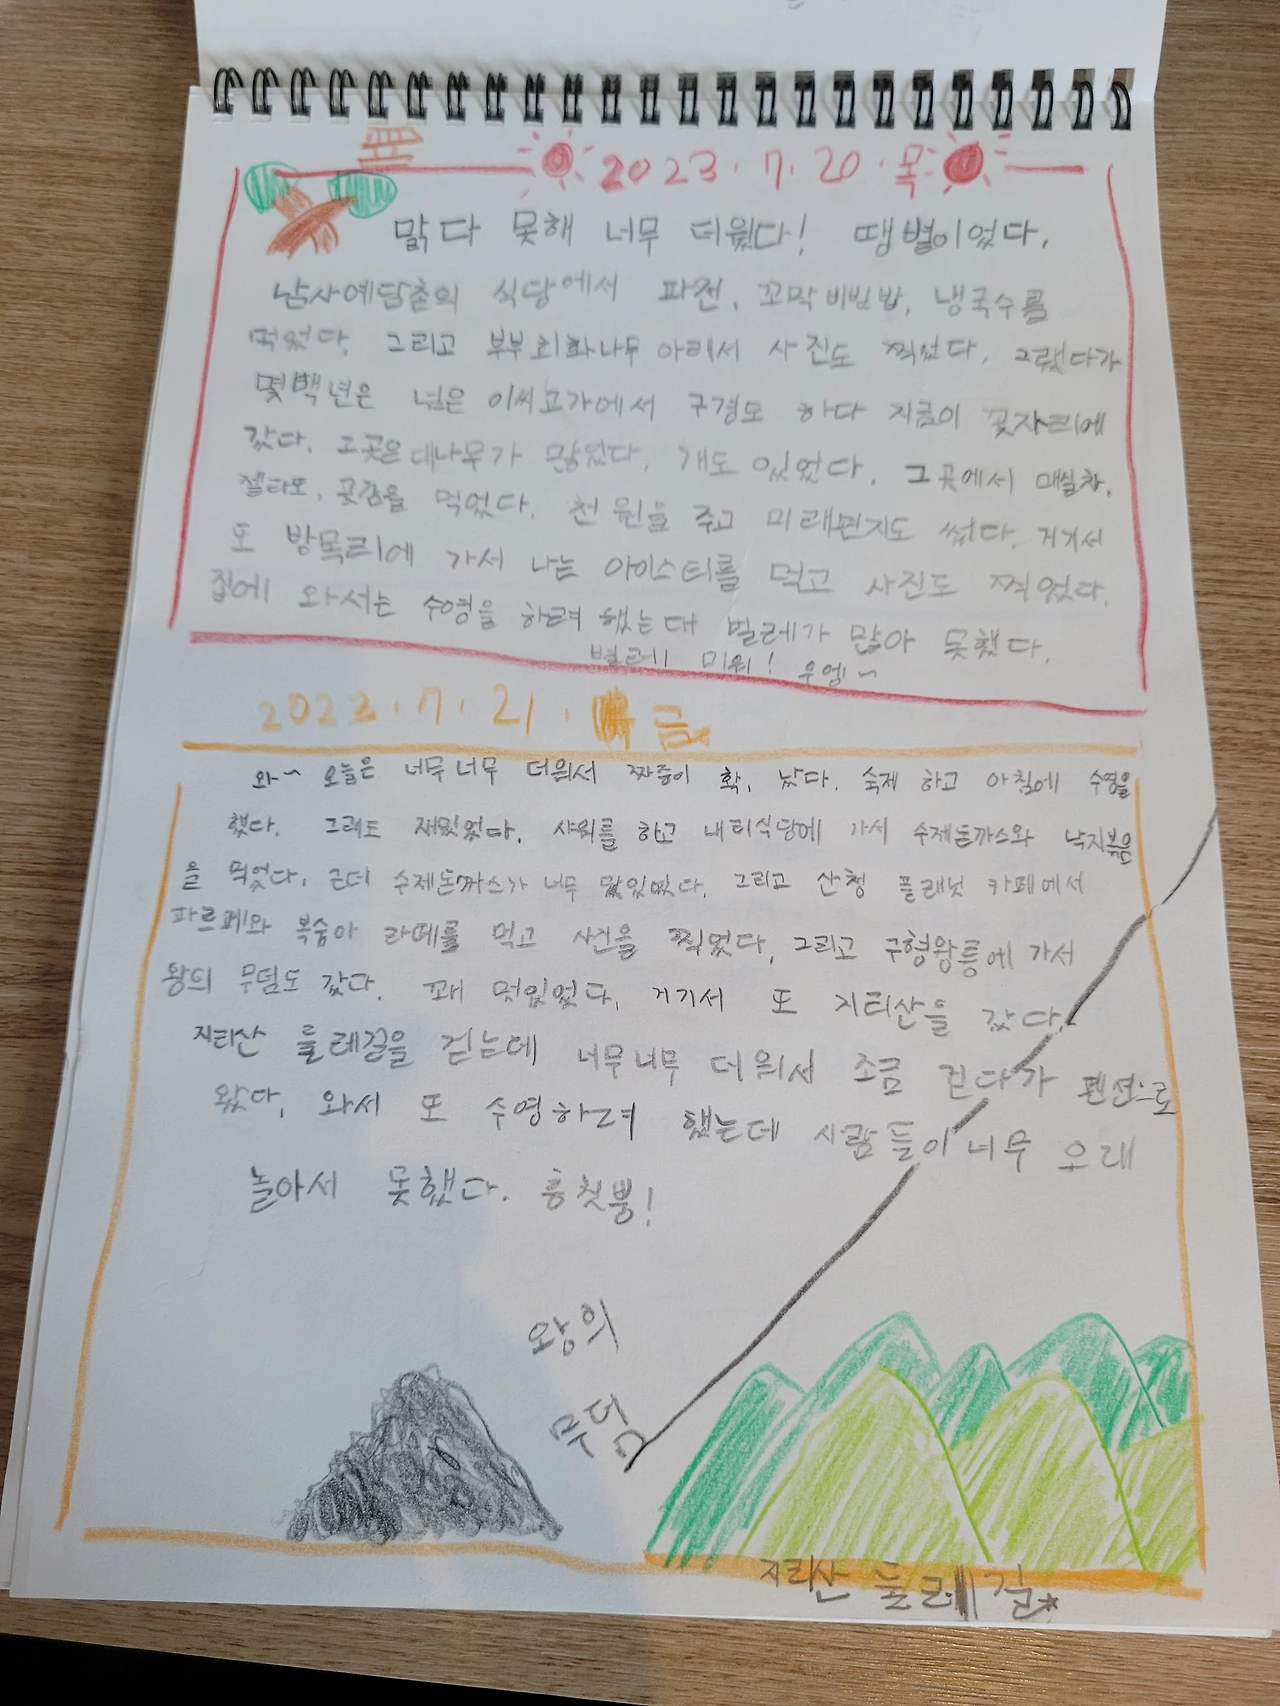 2023.7.20.목
맑다 못해 너무 더웠다! 땡볕이었다.
남사예담촌의 식당에서 파전, 꼬막비빔밥, 냉국수를
먹었다. 그리고 부부회화나무 아래서 사진도 찍었다. 그랬다가
몇백년은 넘은 이씨고가에서 구경도 하다 지금이 꽃자리에
갔다. 그곳은 대나무가 많았다. 개도 있었다. 그곳에서 매실차,
젤라또, 곶감을 먹었다. 천원을 주고 미래편지도 썼다. 거기서
또 방목리에 가서 나는 아이스티를 먹고 사진도 찍었다.
집에 와서는 수영을 하려 했는대 벌레가 많아 못했다.
벌레 미워! 우엥~
2023.7.21. 금
와~ 오늘은 너무너무 더워서 짜증이 확, 났다. 숙제 하고 아침에 수영을
했다. 그래도 재밌었다. 샤워를 하고 내리식당에 가서 수제돈까스와 낙지볶음
을 먹었다. 근데 수제돈까스가 너무 맛있었다. 그리고 산청 플래닛 카페에서
파르페와 복숭아 라떼를 먹고 사진을 찍었다. 그리고 구형왕릉에 가서
왕의 무덤도 갔다. 꽤 멋있었다. 거기서 또 지리산을 갔다.
지리산 둘레길을 걷는데 너무너무 더워서 조금 걷다가 펜션으로
왔다. 와서 또 수영하려 했는데 사람들이 너무 오래
놀아서 못했다. 흥칫뿡!
왕의
무덤
지리산 둘레길